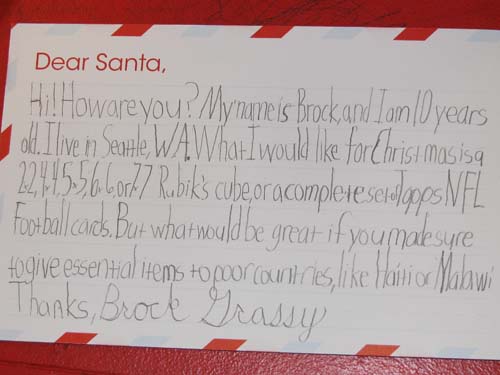 Dear Santa,
Hi! How are you? My name is Brock, and I am 10 years
old. I live in Seattle, WA. What I would like for Christmas is a
2.2, 4.4, 5.5, 6.6, or 7.7 Rubik's cube, or a complete set of Tapps NFL
Football cards. But what would be great if you made sure
to give essential items to poor countries, like Haiti or Malawi
Thanks, Brock Grassy